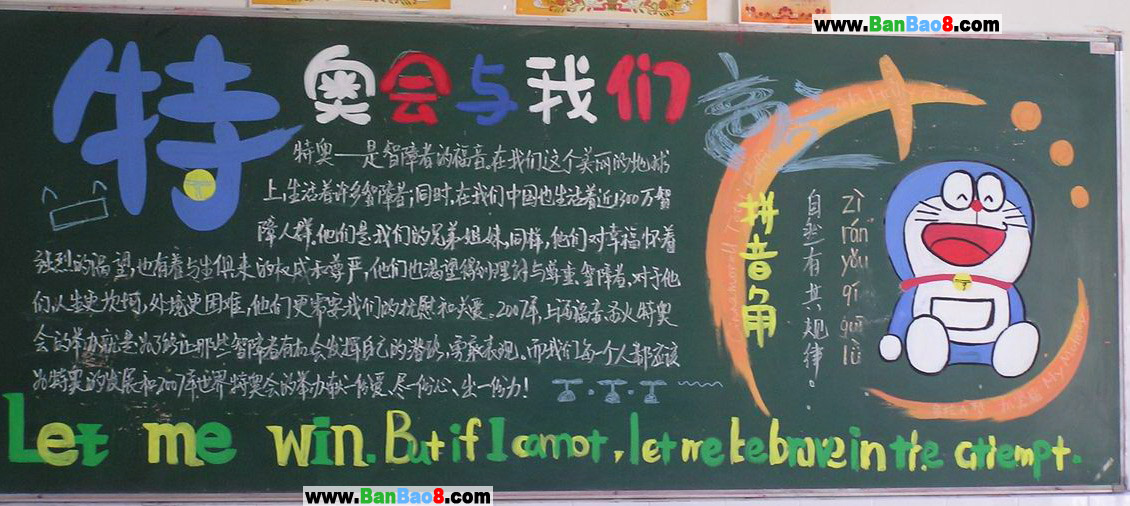 www.BanBao8.com
特奥会与我们
特奥——是智障者的福音。在我们这个美丽的地球
上,生活着许多智障者;同时,在我们中国也生活着近1300万智
障人群。他们是我们的兄弟姐妹,同样,他们对幸福怀着
强烈的渴望,也有着与生俱来的权威和尊严,他们也渴望得到理解与尊重。智障者,对于他
们人生更坎坷,外境更困难,他们更需要我们的抚慰和关爱。2007年,上海福音圣火特奥
会的举办就是为了终止那些智障者有机会发挥自己的潜能,需表现。而我们每一个人都应该
为特奥的发展和2007年世界特奥会的举办献一份爱、尽一份心、出一份力!
拼音角
自然有其规律。
zì rán yǒu qí guī lǜ
Let me win. But if I cannot, let me be brave in the attempt.
www.BanBao8.com